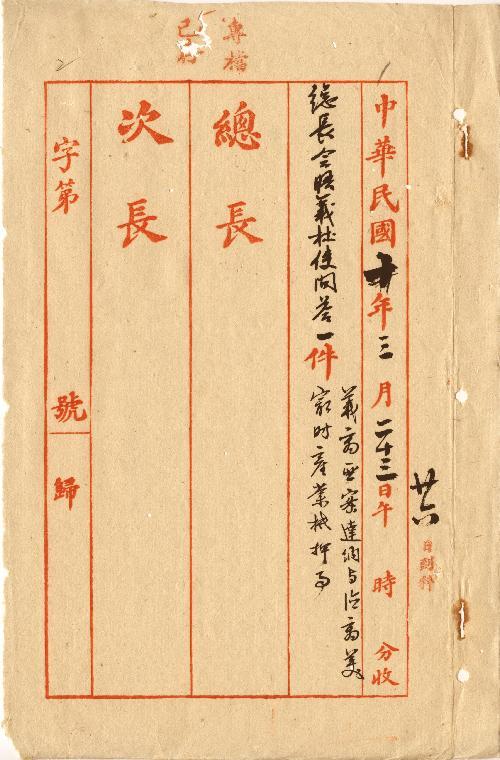 專檔
已
廿六
日到科
中華民國十年三月二十三日午 時 分收
總長會晤義杜使問答一件
義商亞寀達納与德商美
家財產業抵押事
總長
次長
字第 號 歸